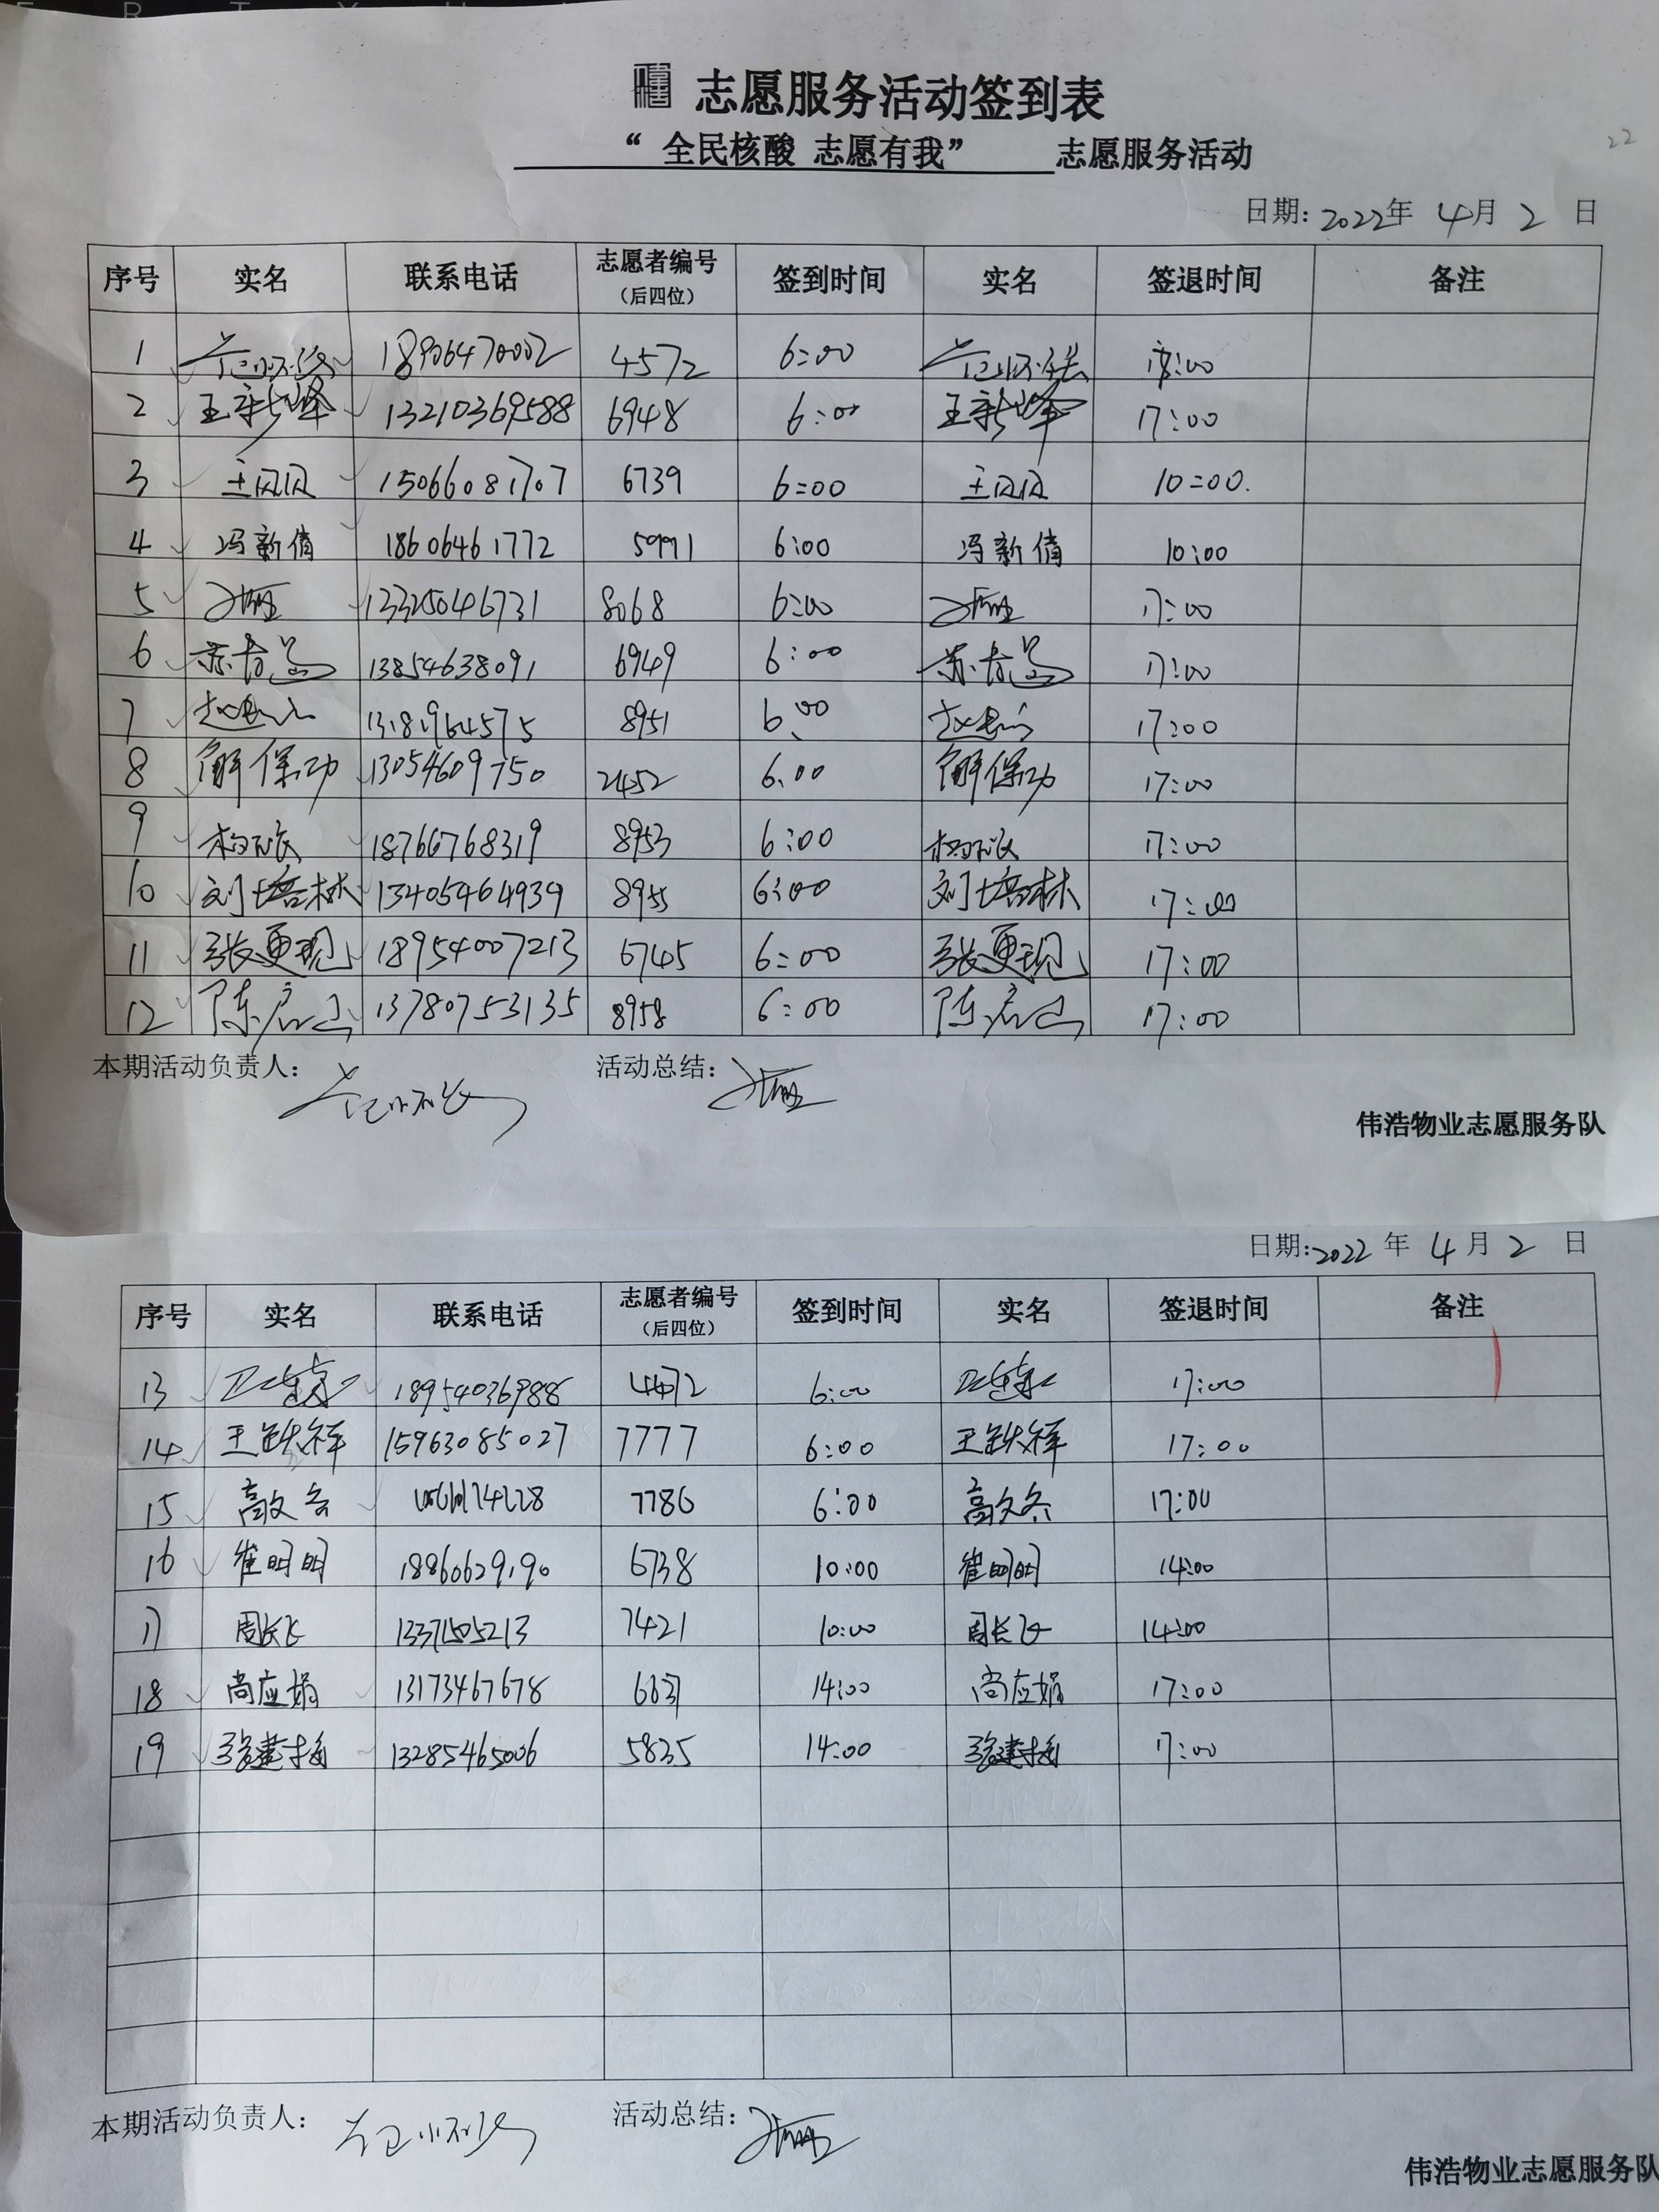 志愿服务活动签到表
“ 全民核酸 志愿有我” 志愿服务活动
22
日期: 2022年 4月 2 日
序号 实名 联系电话 志愿者编号（后四位） 签到时间 实名 签退时间 备注
1 18906470002 4572 6:00 :00
2 王新峰 13210369588 6948 6:00 王新峰 17:00
3 王贝贝 15066081707 6739 6:00 王贝贝 10:00.
4 冯新倩 18606461772 5991 6:00 冯新倩 10:00
5 13325046731 8068 6:00 17:00
6 13854638091 6949 6:00 17:00
7 13181964575 8951 6:00 17:00
8 解保功 13054609750 2452 6:00 解保功 17:00
9 18766768319 8953 6:00 17:00
10 刘培林 13405464939 8955 6:00 刘培林 17:00
11 张更现 18954007213 6745 6:00 张更现 17:00
12 陈启 13780753135 8958 6:00 陈启 17:00
本期活动负责人: 活动总结:
伟浩物业志愿服务队
日期: 2022 年 4 月 2 日
序号 实名 联系电话 志愿者编号（后四位） 签到时间 实名 签退时间 备注
13 18954036988 4472 6:00 17:00
14 王铁祥 15963085027 7777 6:00 王铁祥 17:00
15 高文 7786 6:00 高文 17:00
16 崔明明 18860629190 6738 10:00 崔明明 14:00
17 周长飞 13371505213 7421 10:00 周长飞 14:00
18 尚应娟 13173467678 14:00 尚应娟 17:00
19 建梅 13285465006 5835 14:00 建梅 17:00
本期活动负责人: 活动总结:
伟浩物业志愿服务队